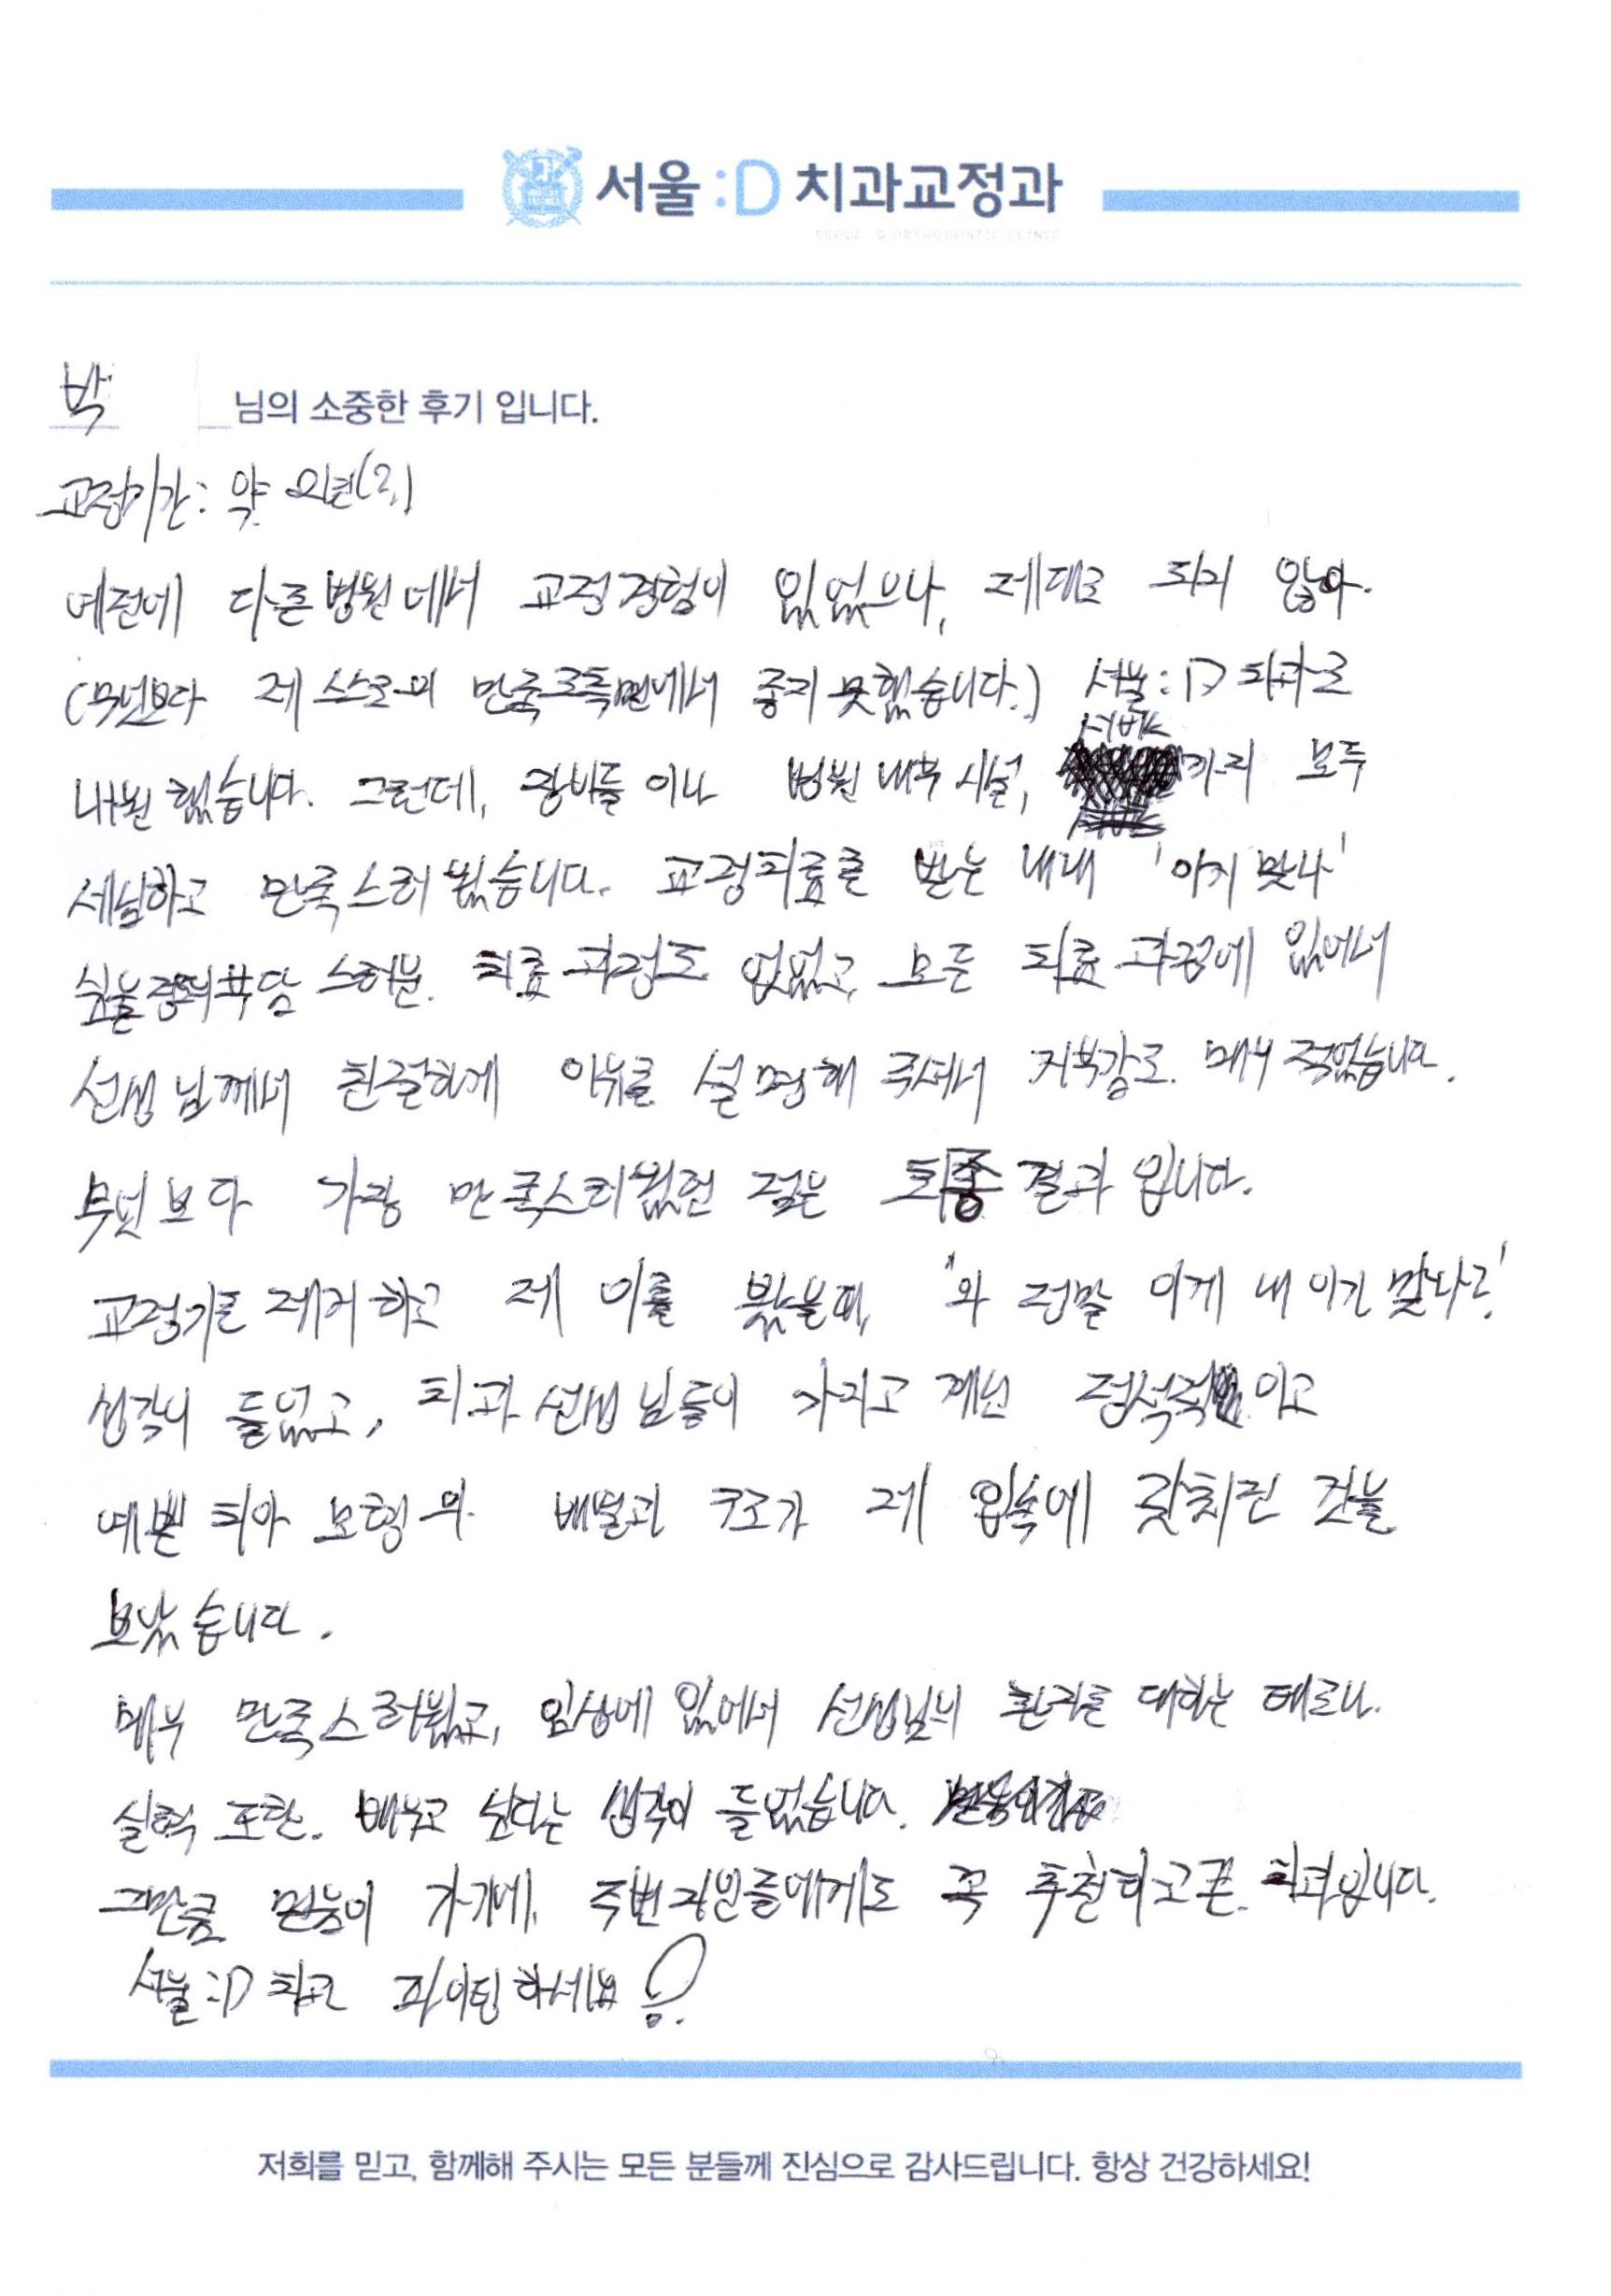 서울:D 치과교정과
SEOUL :D ORTHODONTIC CLINIC
박 님의 소중한 후기 입니다.
교정기간: 약 2년(?)
예전에 다른병원에서 교정경험이 있었으나, 제대로 되지 않아.
(무엇보다 제 스스로의 만족도측면에서 좋지 못했습니다.) 서울:D 치과로
내원했습니다. 그런데, 장비들 이나 병원 내부 시설, 서비스까지 모두
세심하고 만족스러웠습니다. 교정치료를 받는 내내 '아치 맞나'
싶을정도 부담 스러운. 치료 과정도 없었고, 모든 치료 과정에 있어서
선생님께서 친절하게 이유를 설명해 주셔서 거부감도. 매우 적었습니다.
무엇보다 가장 만족스러웠던 점은 최종 결과 입니다.
교정기를 제거하고 제 이를 봤을때, '와 정말 이게 내 이가 맞나?'
생각이 들었고, 치과 선생님들이 가지고 계신 정석적이고
예쁜 치아 모형의 배열과 구조가 제 입속에 갖춰진 것을
보았습니다.
매우 만족스러웠고, 임상에 있어서 선생님의 환자를 대하는 태도나.
실력 또한. 배우고 싶다는 생각이 들었습니다.
그만큼 믿음이 가기에, 주변지인들에게도 꼭 추천하고픈 치과입니다.
서울:D 치과 파이팅하세요!
저희를 믿고, 함께해 주시는 모든 분들께 진심으로 감사드립니다. 항상 건강하세요!